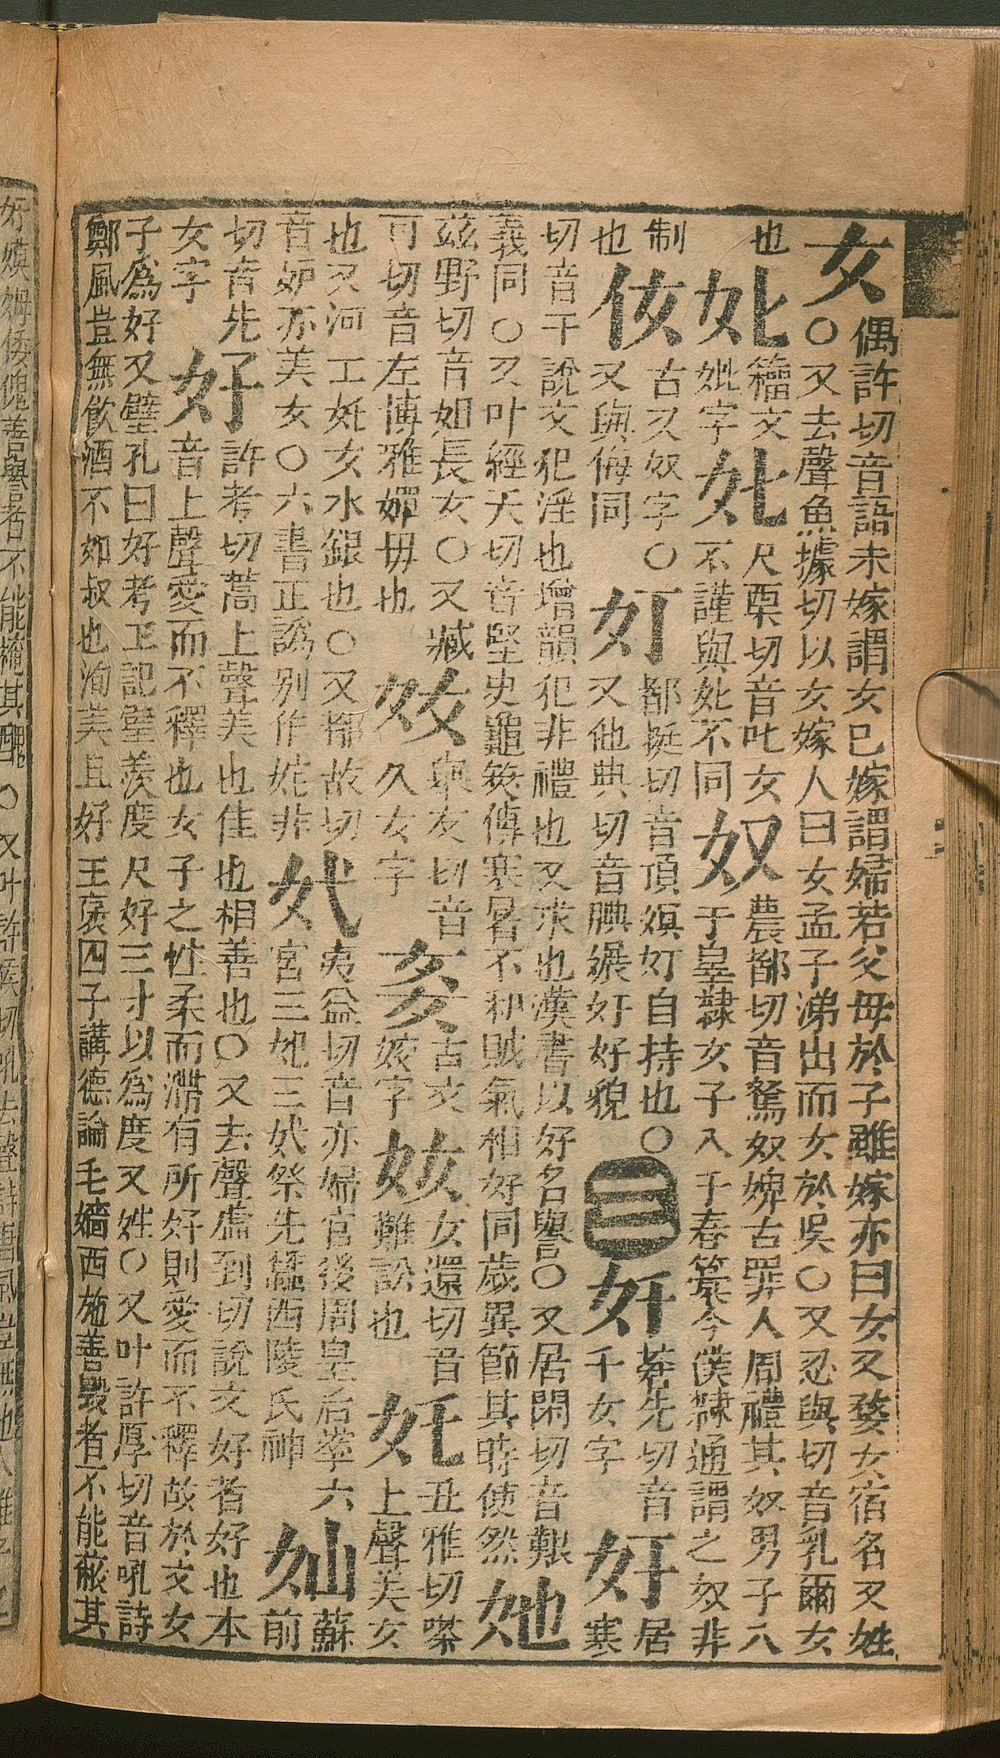 女偶許切音語未嫁謂女已嫁謂婦若父母於子雖嫁亦曰女又婺女宿名又姓
〇又去聲魚據切以女嫁人曰女孟子涕出而女於吳〇又忍與切音乳爾女
也 籀文 尺栗切音叱女 農都切音駑奴婢古罪人周禮其奴男子入
妣妣字 不謹與妣不同奴于皋隸女子入于舂槀今僕隸通謂之奴非
制 古文奴字〇 都挺切音頂嫇奵自持也〇 蒼先切音 居
也㚢又與侮同奵又他典切音腆㜊奵好貌三奷千女字奸寒
切音干說文犯淫也增韻犯非禮也又求也漢書以奸名譽〇又居閑切音艱
義同〇又叶經天切音堅史龜筴傳寒暑不和賊氣相奸同歲異節其時使然她
茲野切音姐長女〇又臧 與友切音 古文 女還切音 丑雅切㗬
可切音左博雅㜷毋也 久女字 姟字奻難訟也奼上聲美女
也又河工奼女水銀也〇又都故切 夷益切音亦婦官後周皇后掌六 蘇
音妒亦美女〇六書正譌别作姹非㚤宮三妣三㚤祭先蠶西陵氏神奾前
切音先 許考切蒿上聲美也佳也相善也〇又去聲虛到切說文好者好也本
女字好音上聲愛而不釋也女子之性柔而滯有所好則愛而不釋故於文女
子爲好又璧孔曰好考工記璧羨度尺好三寸以爲度又姓〇又叶許厚切音吼詩
鄭風豈無飲酒不如叔也洵美且好王褒四子講德論毛嬙西施善毀者不能蔽其